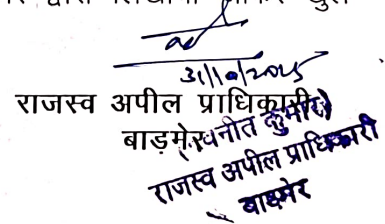 द्वारा
31/10/2025
राजस्व अपील प्राधिकारी
बाड़मेर
(नवनीत कुमार)
राजस्व अपील प्राधिकारी
बाड़मेर